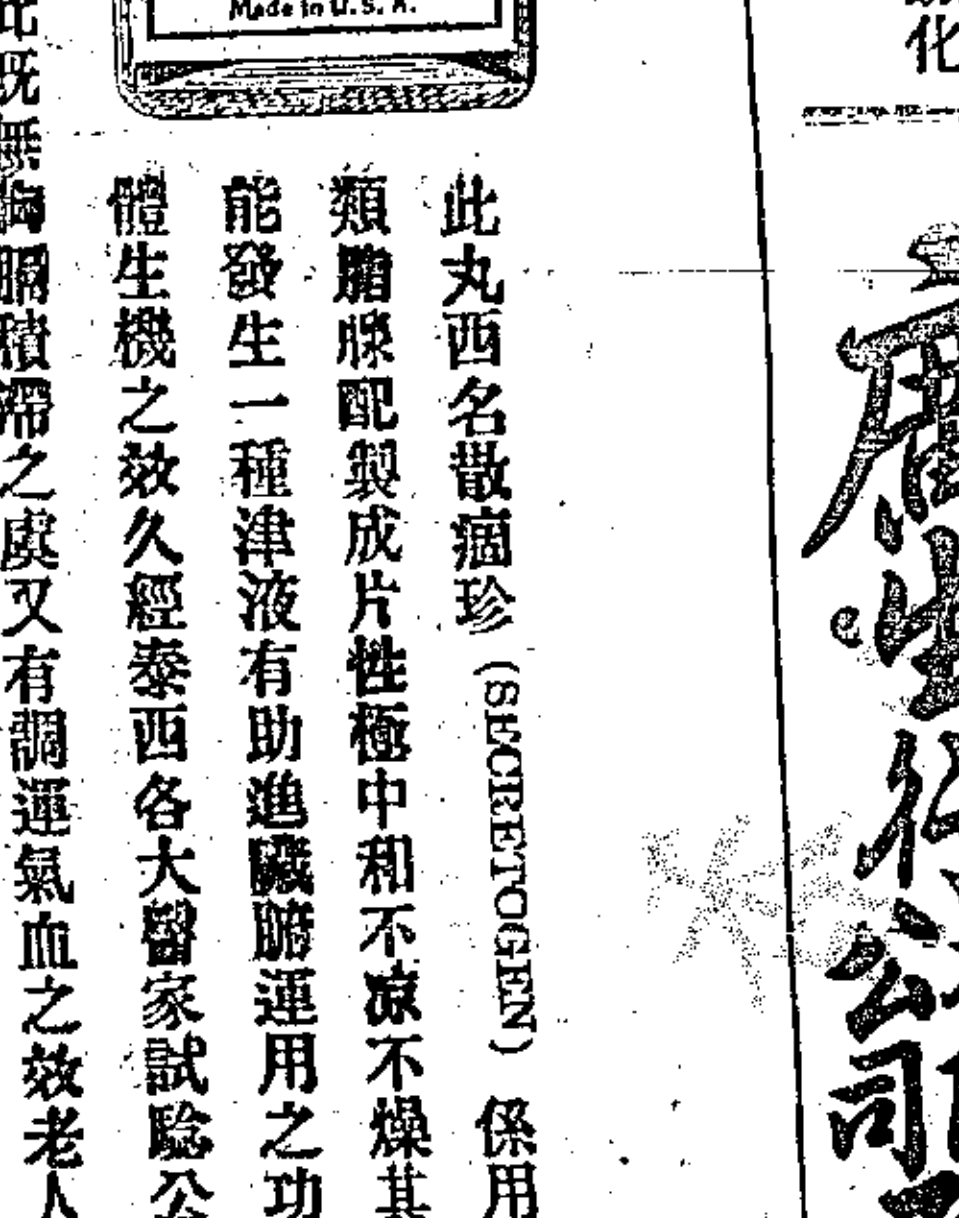 化
廣生行
公司
Made in U.S.A.
此丸西名散痼珍（SECRETOGEN）係用
類膽腺配製成片性極中和不凉不燥其
能發生一種津液有助進臟腑運用之功
體生機之效久經泰西各大醫家試驗公
此既無
積滯之虞又有調運氣血之效老人